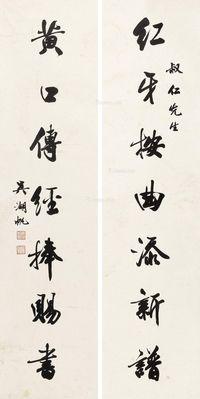 红牙按曲添新譜
叔仁先生
黄口傳經捧賜書
吴湖帆